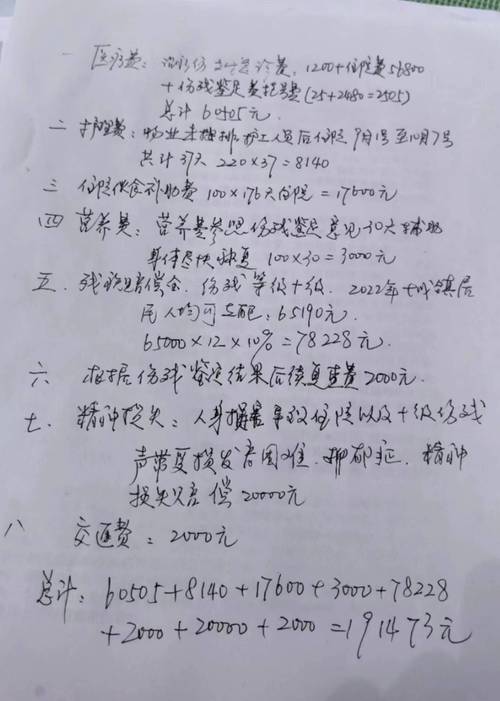 一 医疗费：诊费，1200+住院费56800
+伤残鉴定费挂号费(25+2480=2505)
总计60505元
二 护理费：物业未安排护工人员后住院9月1号至10月7号
共计37天 220×37=8140
三 住院伙食补助费 100×176天住院=17600元
四 营养费：营养基参照伤残鉴定意见30天
身体尽快恢复 100×30=3000元
五、残疾赔偿金、伤残等级十级、2022年城镇居
民人均可支配：65190元
65000×12×10%=78228元
六 根据伤残鉴定结果后续复查费2000元
七、精神损失：人身损害导致住院以及十级伤残
声带受损发音困难、抑郁症、精神
损失赔偿20000元
八 交通费：2000元
总计：60505+8140+17600+3000+78228
+2000+20000+2000=191473元